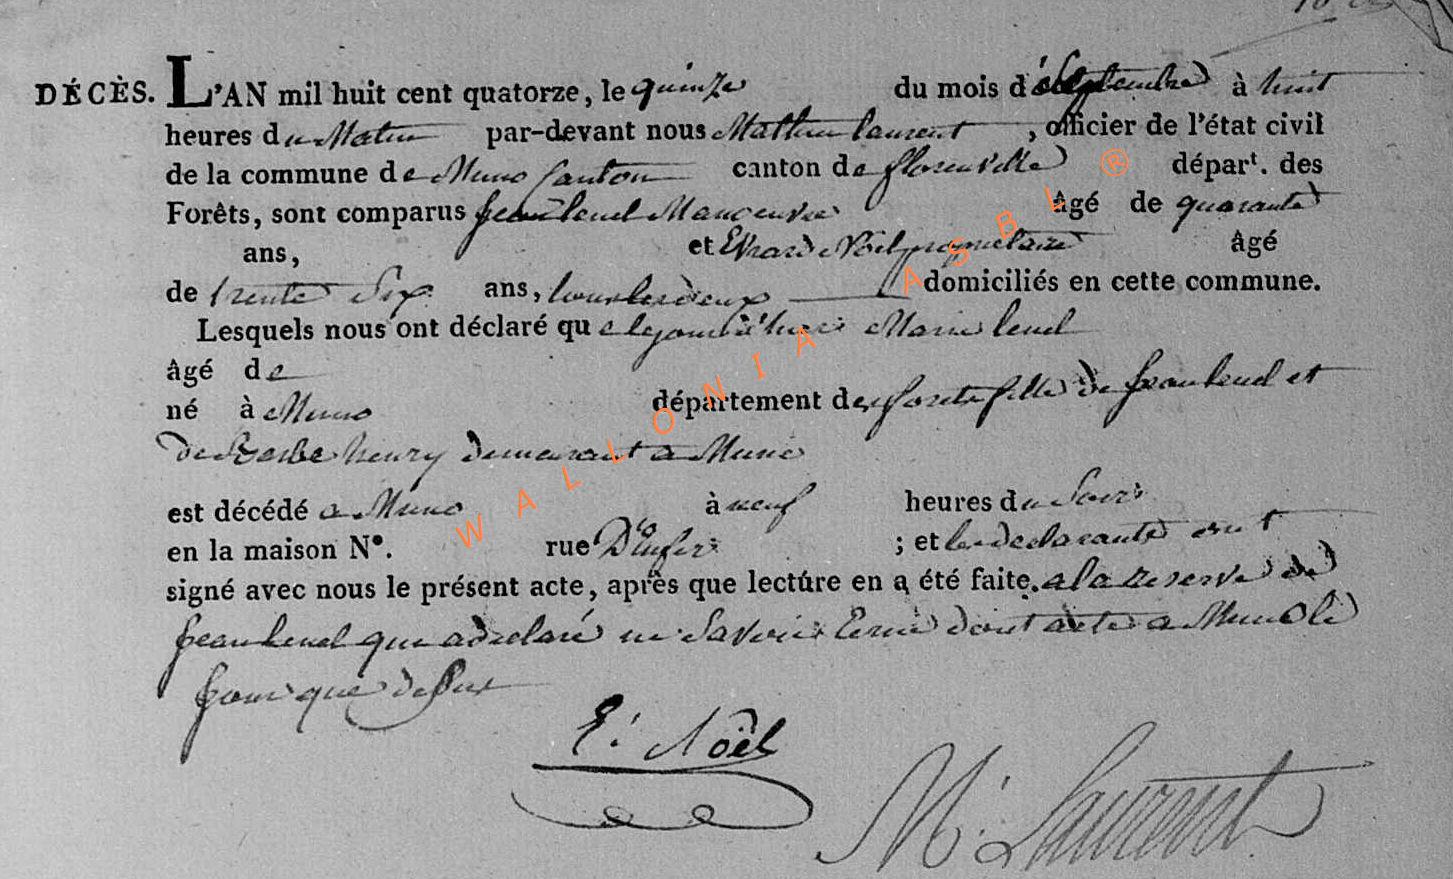 DÉCÈS. L'AN mil huit cent quatorze, le quinze du mois de Septembre à huit
heures du Matin par-devant nous Mathieu laurent, officier de l'état civil
de la commune de Muno Canton canton de florenville départ. des
Forêts, sont comparus jean lenel Manoeuvre âgé de quarante
ans, et Evrard Noël propriétaire âgé
de trente Six ans, tous les deux domiciliés en cette commune.
Lesquels nous ont déclaré que le jour d'hier Marie lenel
âgé de
né à Muno département des forets fille de jean lenel et
de Barbe henry demeurant a Muno
est décédé a Muno à neuf heures du Soir
en la maison N°. rue D'Enfer ; et les declarants ont
signé avec nous le présent acte, après que lecture en a été faite. a la reserve de
jean lenel qui a declaré ne Savoir Ecrire dont acte a Muno le
jour que dessus
E. Noël
M. Laurent
WALLONIA ASBL ®